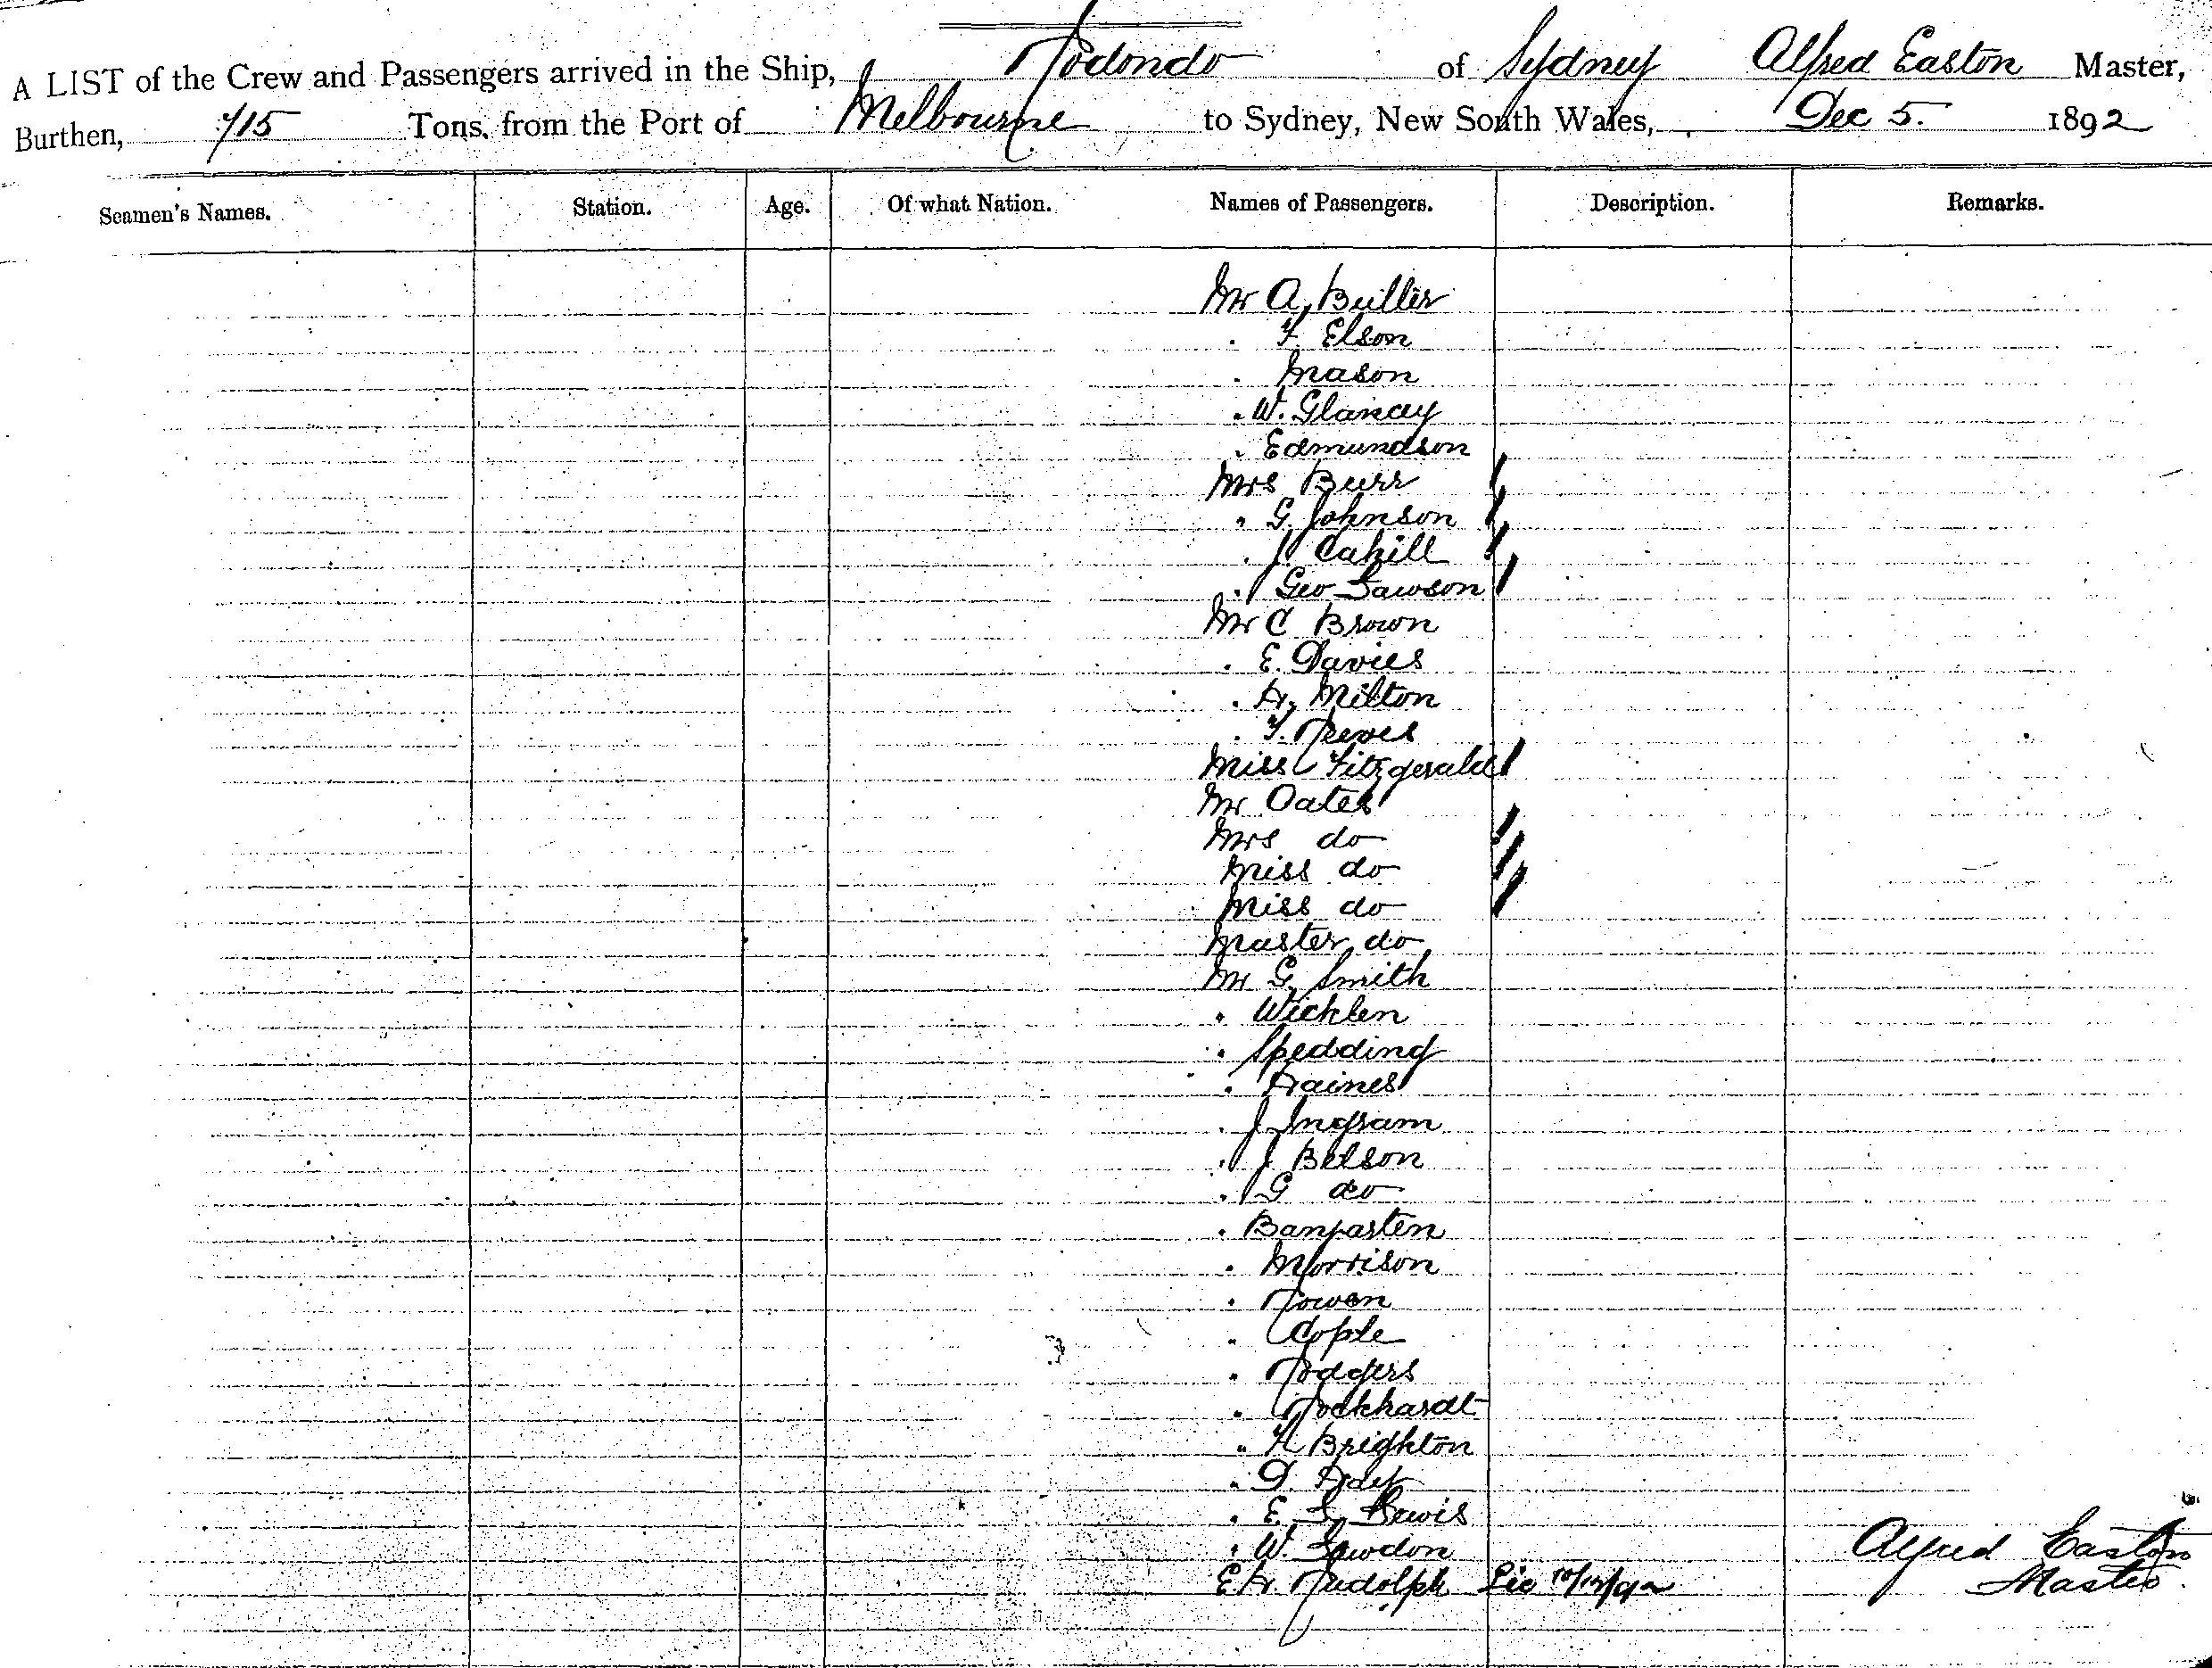 A LIST of the Crew and Passengers arrived in the Ship, Rodondo of Sydney Alfred Easton Master,
Burthen, 715 Tons, from the Port of Melbourne to Sydney, New South Wales, Dec 5. 1892
Seamen's Names. Station. Age. Of what Nation. Names of Passengers. Description. Remarks.
Mr A. Butler
. F. Elson
. Mason
. W. Glancey
. Edmundson
Mrs Burr
. G. Johnson
. J. Cahill
. Geo Lawson
Mr C Brown
. E. Davies
. H. Milton
. F. Reeves
Miss Fitzgerald
Mr Oates
Mrs do
Miss do
Miss do
Master do
Mr G. Smith
. Wicklen
. Spedding
. Haines
. J. Ingram
. J Belson
. G do
. Morrison
. Rowen
. Cople
. Rodgers
. Rockhardt
. H Brighton
. D.
. E. S. Lewis
. W. Lawdon
E. H. Rudolph Lic 10/12/92
Alfred Easton
Master.